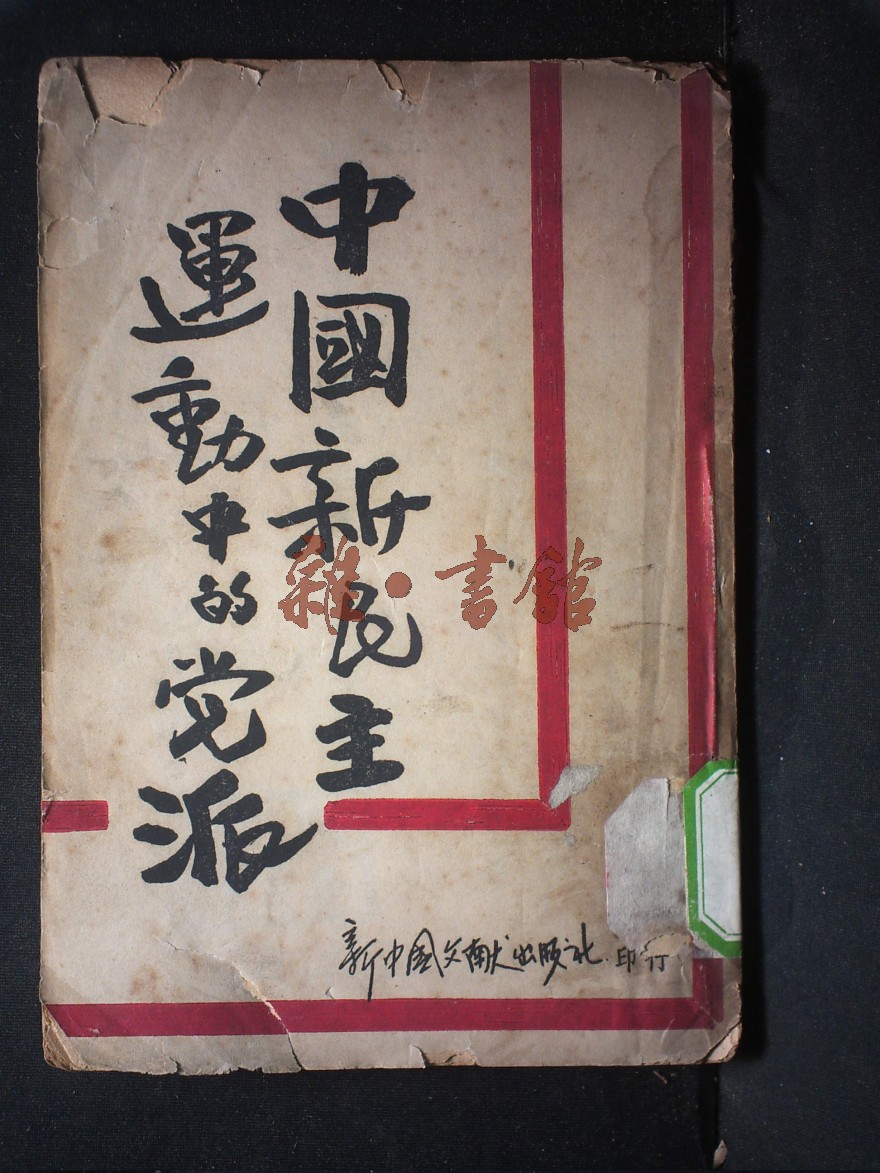 中國新民主
運動中的党派
新中国文献出版社 印行
雜·書館